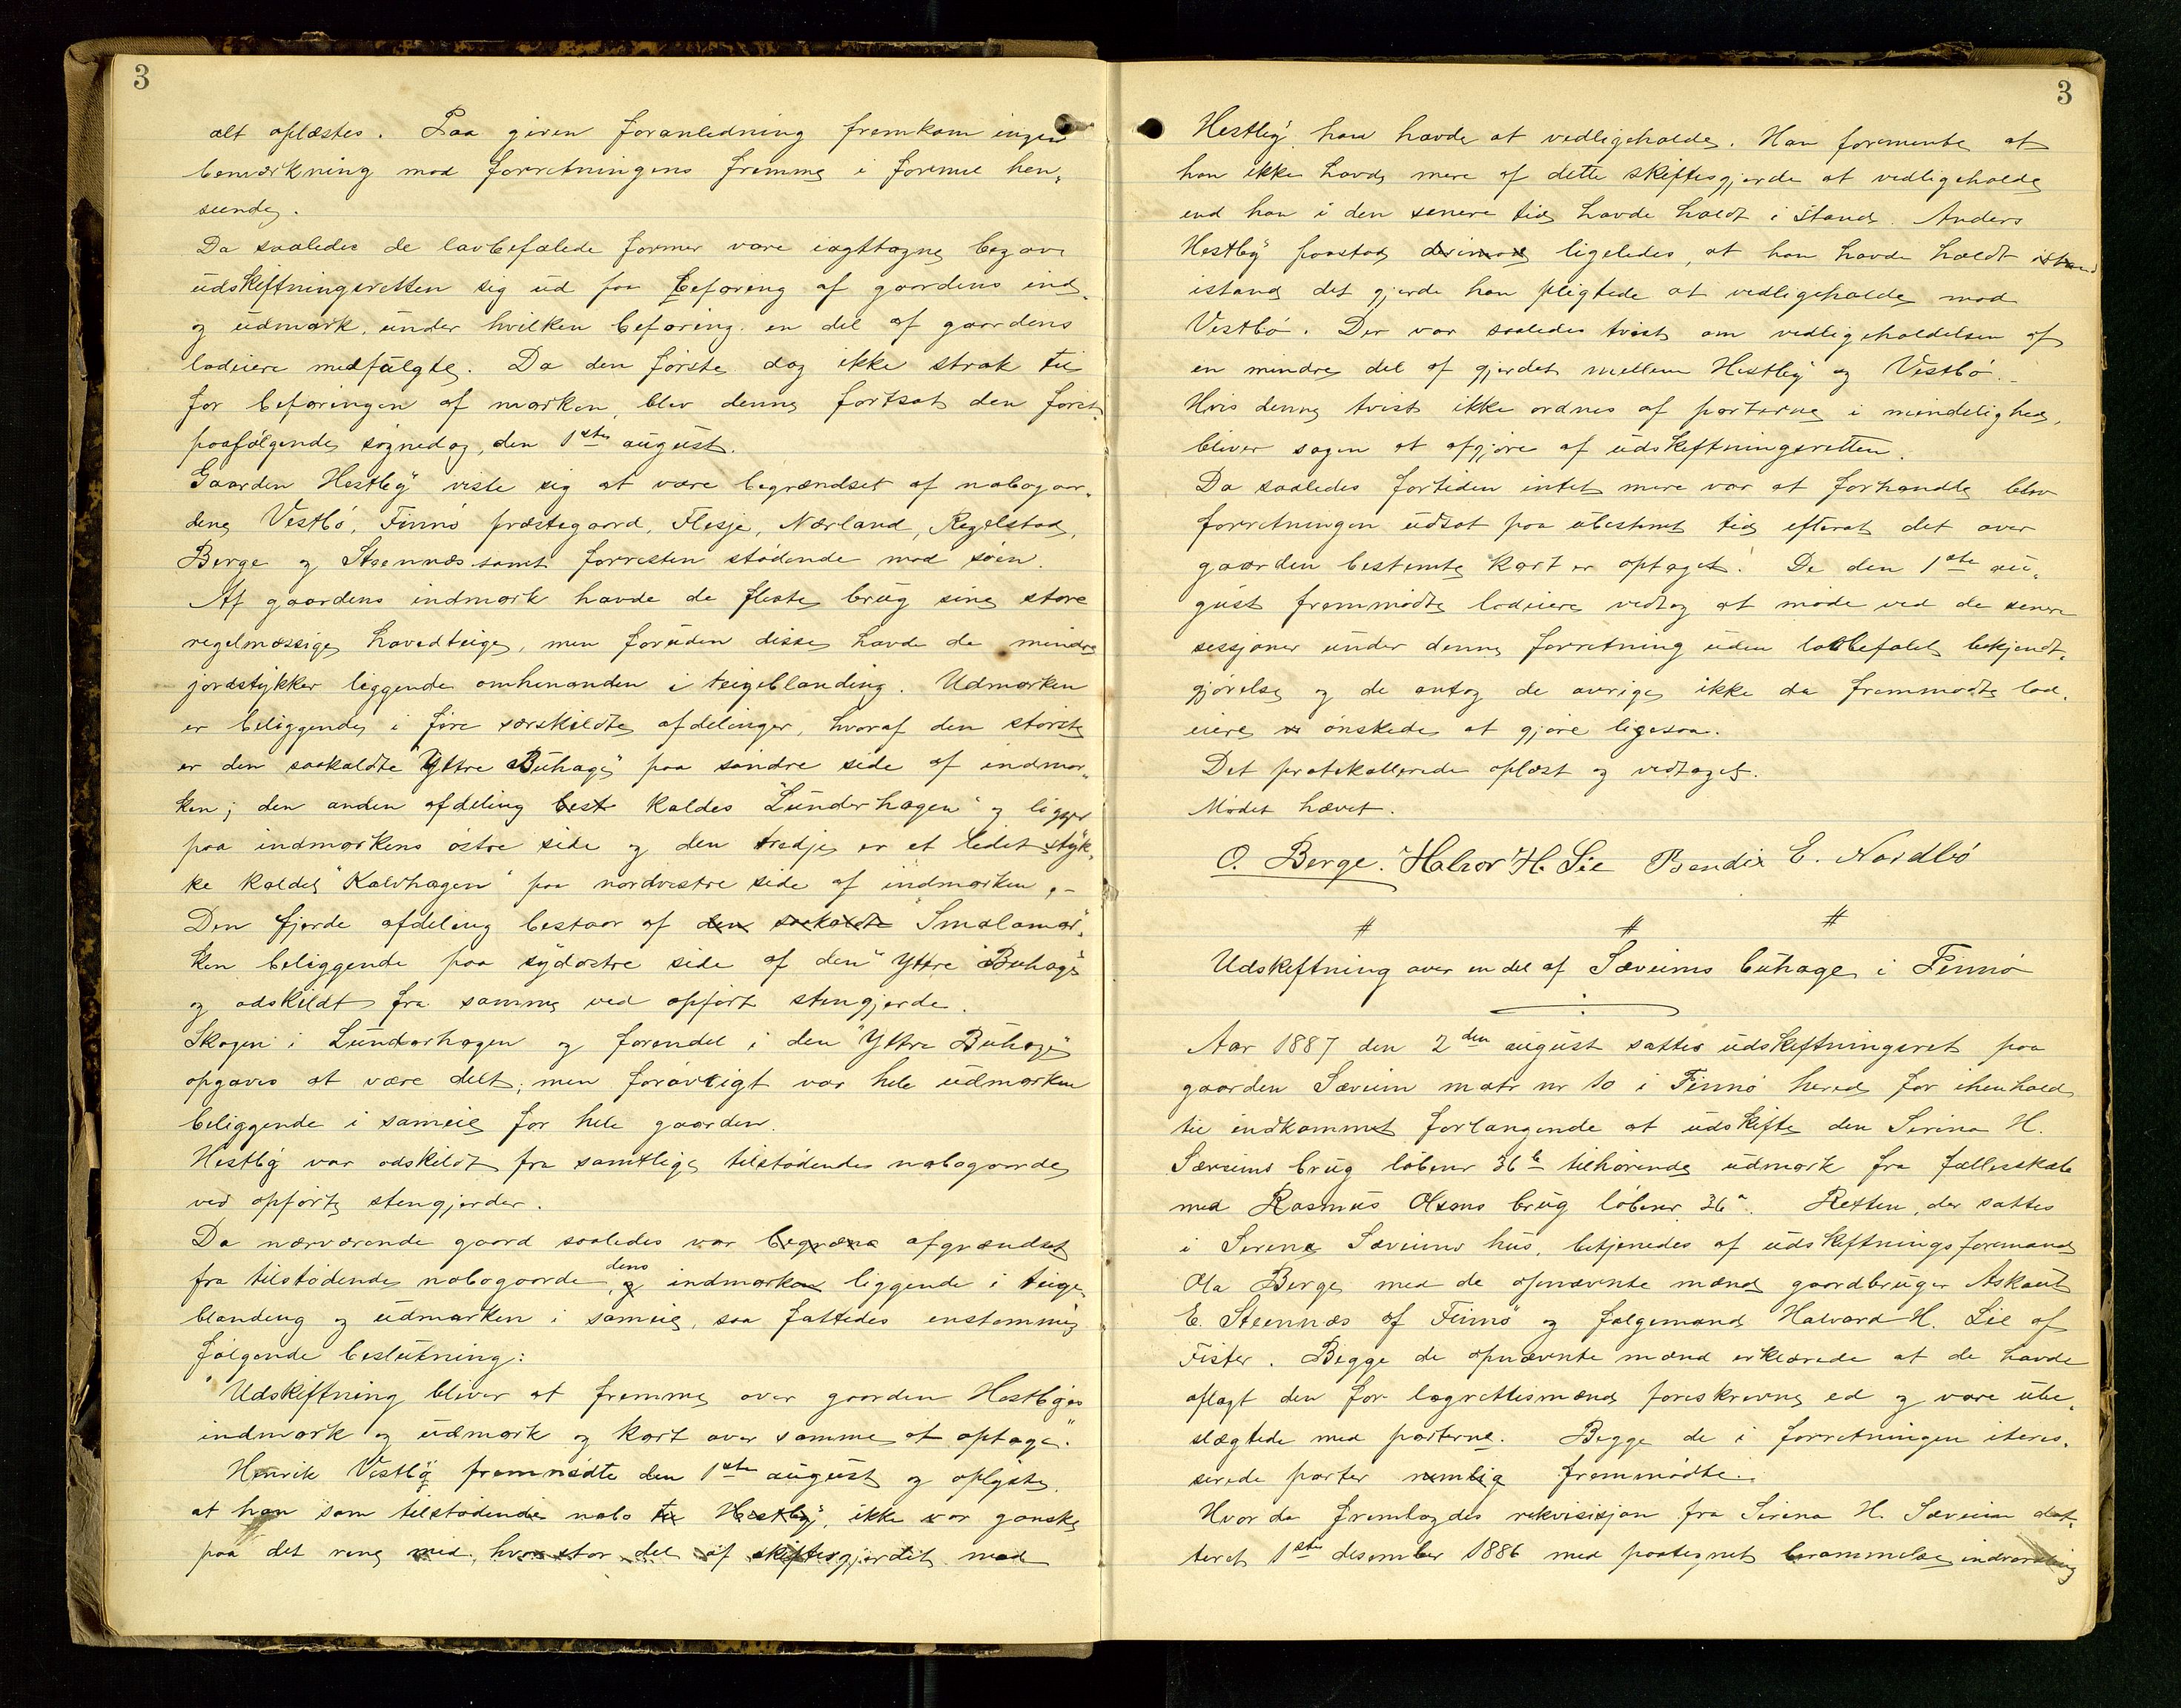 3
alt oplæstes. Paa given foranledning fremkom ingen
bemærkning mod forretningens fremme i formel hen-
seende.
Da saaledes de lovbefalede former vare iagttagne begav
udskiftningsretten sig ud paa befaring af gaardens ind-
og udmark, under hvilken befaring en del af gaardens
lodeiere medfulgte. Da den første dag ikke strak til
for befaringen af marken, blev denne fortsat den først
paafølgende søgnedag, den 1ste august.
Gaarden Hestbø viste sig at være begrændset af nabogaar-
dene Vestbø, Finnø præstegaard, Flesje, Nærland, Regelstad,
Berge og Steennæs samt forresten stødende mod søen.
Af gaardens indmark havde de fleste brug sine store
regelmæssige hovedteige, men foruden disse havde de mindre
jordstykker liggende omhinanden i teigeblanding. Udmarken
er beliggende i fire særskildte afdelinger, hvoraf den største
er den saakaldte "Yttre Buhage" paa søndre side af indmar-
ken; den anden afdeling best kaldes "Lunderhagen" og ligger
paa indmarkens østre side og den tredje er et lidet styk-
ke kaldet "Kalvhagen" paa nordvestre side af indmarken.-
Den fjerde afdeling bestaar af den saakaldte "Smalamar-
ken beliggende paa sydøstre side af den "Yttre Buhage"
og adskildt fra samme ved opført stengjerde.
Skogen i Lunderhagen og forendel i den "Yttre Buhage"
opgaves at være delt; men forøvrigt var hele udmarken
beliggende i sameie for hele gaarden.
Hestbø var adskildt fra samtlige tilstødende nabogaarde
ved opførte stengjerder.
Da nærværende gaard saaledes var begræns afgrændset
fra tilstødende nabogaarde, og dens indmarken liggende i teige-
blanding og udmarken i sameie, saa fattedes enstemmig
følgende beslutning:
"Udskiftning bliver at fremme over gaarden Hestbøs
indmark og udmark og kart over samme at optage."
Henrik Vestbø fremmødte den 1ste august og oplyste,
at han som tilstødende nabo til Hestbø, ikke var ganske
paa det rene med, hvor stor del af skiftesgjerdet mod
3
Hestbø han havde at vedligeholde. Han formente at
han ikke havde mere af dette skiftesgjerde at vedligeholde
end han i den senere tid havde holdt i stand. Anders
Hestbø paastod derimod ligeledes, at han havde holdt istand
istand det gjerde han pligtede at vedligeholde mod
Vestbø. Der var saaledes tvist om vedligeholdelsen af
en mindre del af gjerdet mellem Hestbø og Vestbø.-
Hvis denne tvist ikke ordnes af parterne i mindelighed,
bliver sagen at afgjøre af udskiftningsretten.
Da saaledes fortiden intet mere var at forhandle blev
forretningen udsat paa ubestemt tid efterat det over
gaarden bestemte kart er optaget. De den 1ste au-
gust fremmødte lodeiere vedtog at møde ved de senere
sessjoner under denne forretning uden lovbefalet bekjendt-
gjørelse og de antog de øvrige ikke da fremmødte lod-
eiere ønskede at gjøre ligesaa.
Det protokollerede oplæst og vedtaget.
Mødet hævet.
O. Berge. Halvor H. Lie Bendix E. Nordbø
# # #
Udskiftning over en del af Sæveims buhage i Finnø
Aar 1887 den 2den august sattes udskiftningsret paa
gaarden Sæveim matr nr 10 i Finnø hered for ihenhold
til indkommet forlangende at udskifte den Serina H.
Sæveims brug løbenr 36b tilhørende udmark fra fællesskab
med Rasmus Olsens brug løbenr 36a. Retten, der sattes
i Serine Sæveims hus, betjenedes af udskiftningsformand
Ola Berge med de opnævnte mænd gaardbruger Askaut
E. Steennæs af Finnø og følgemand Halvard H. Lie af
Fister. Begge de opnævnte mænd erklærede at de havde
aflagt den for lagrettesmænd foreskrevne ed og vare ube-
slægtede med parterne. Begge de i forretningen iteres-
serede parter nemlig fremmødte.
Hvor da fremlagdes rekvisisjon fra Serina H. Sæveim dat-
teret 1ste desember 1886 med paategnet berammelse, indvarsling